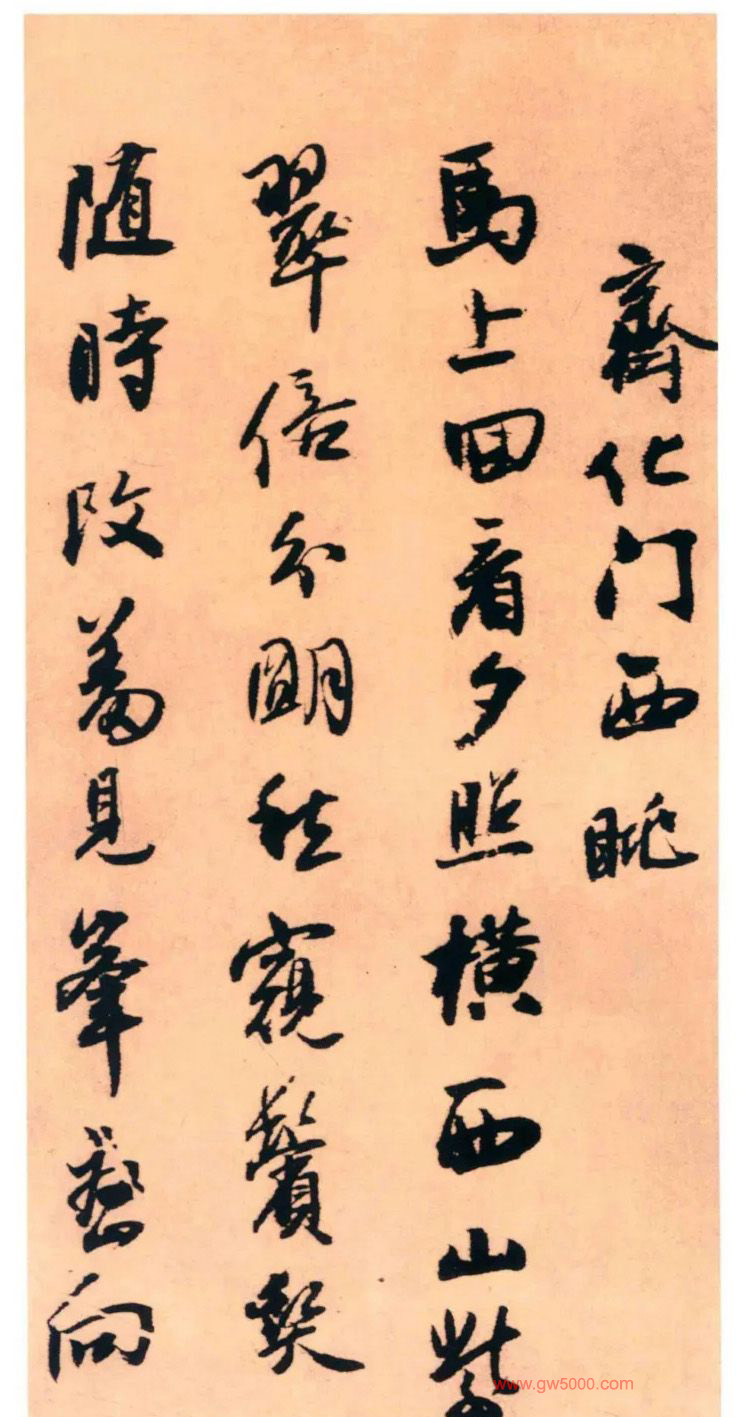 齊化门西眺
馬上回看夕照橫西山紫
翠倍分明秋窺鬢
随時改見峯巒向
www.gw5000.com